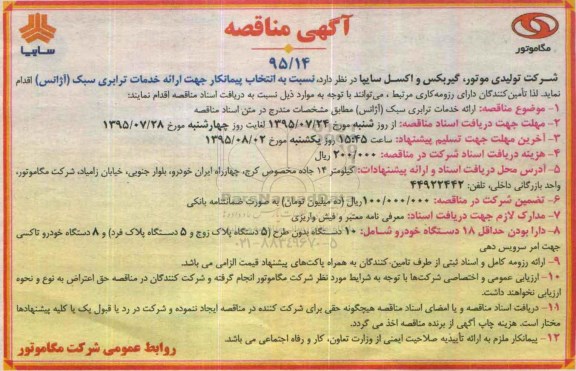 آگهی مناقصه
۹۵/۱۴
مگاموتور
سایپا
شرکت تولیدی موتور، گیربکس و اکسل سایپا در نظر دارد، نسبت به انتخاب پیمانکار جهت ارائه خدمات ترابری سبک (آژانس) اقدام
نماید. لذا تأمین‌کنندگان دارای رزومه‌کاری مرتبط ، می‌توانند با توجه به موارد ذیل نسبت به دریافت اسناد مناقصه اقدام نمایند:
۱- موضوع مناقصه: ارائه خدمات ترابری سبک (آژانس) مطابق مشخصات مندرج در متن اسناد مناقصه
۲- مهلت جهت دریافت اسناد مناقصه: از روز شنبه مورخ ۱۳۹۵/۰۷/۲۴ لغایت روز چهارشنبه مورخ ۱۳۹۵/۰۷/۲۸
۳- آخرین مهلت جهت تسلیم پیشنهاد: ساعت ۱۵:۴۵ روز یکشنبه مورخ ۱۳۹۵/۰۸/۰۲
۴- هزینه دریافت اسناد شرکت در مناقصه: ۲۰۰/۰۰۰ ریال
۵- آدرس محل دریافت اسناد و ارائه پیشنهادات: کیلومتر ۱۴ جاده مخصوص کرج، چهارراه ایران خودرو، بلوار جنوبی، خیابان زامیاد، شرکت مگاموتور،
واحد بازرگانی داخلی، تلفن: ۴۴۹۲۲۴۴۲
۶- تضمین شرکت در مناقصه: ۱۰۰/۰۰۰/۰۰۰ریال (ده میلیون تومان) به صورت ضمانتنامه بانکی
۷- مدارک لازم جهت دریافت اسناد: معرفی نامه معتبر و فیش واریزی
۸- دارا بودن حداقل ۱۸ دستگاه خودرو شامل: ۱۰ دستگاه بدون طرح (۵ دستگاه پلاک زوج و ۵ دستگاه پلاک فرد) و ۸ دستگاه خودرو تاکسی
جهت امر سرویس دهی
۹- ارائه رزومه کامل و اسناد ثبتی از طرف تامین‌کنندگان به همراه پاکت‌های پیشنهاد قیمت الزامی می باشد.
۱۰- ارزیابی عمومی و اختصاصی شرکت‌ها با توجه به شرایط مورد نظر شرکت مگاموتور انجام گرفته و شرکت کنندگان در مناقصه حق اعتراض به نوع و نحوه
ارزیابی نخواهند داشت.
۱۱- دریافت اسناد مناقصه و یا امضای اسناد مناقصه هیچگونه حقی برای شرکت کننده در مناقصه ایجاد ننموده و شرکت در رد یا قبول یک یا کلیه پیشنهادها
مختار است. هزینه چاپ آگهی از برنده مناقصه اخذ می گردد.
۱۲- پیمانکار ملزم به ارائه تأییدیه صلاحیت ایمنی از وزارت تعاون، کار و رفاه اجتماعی می باشد.
روابط عمومی شرکت مگاموتور